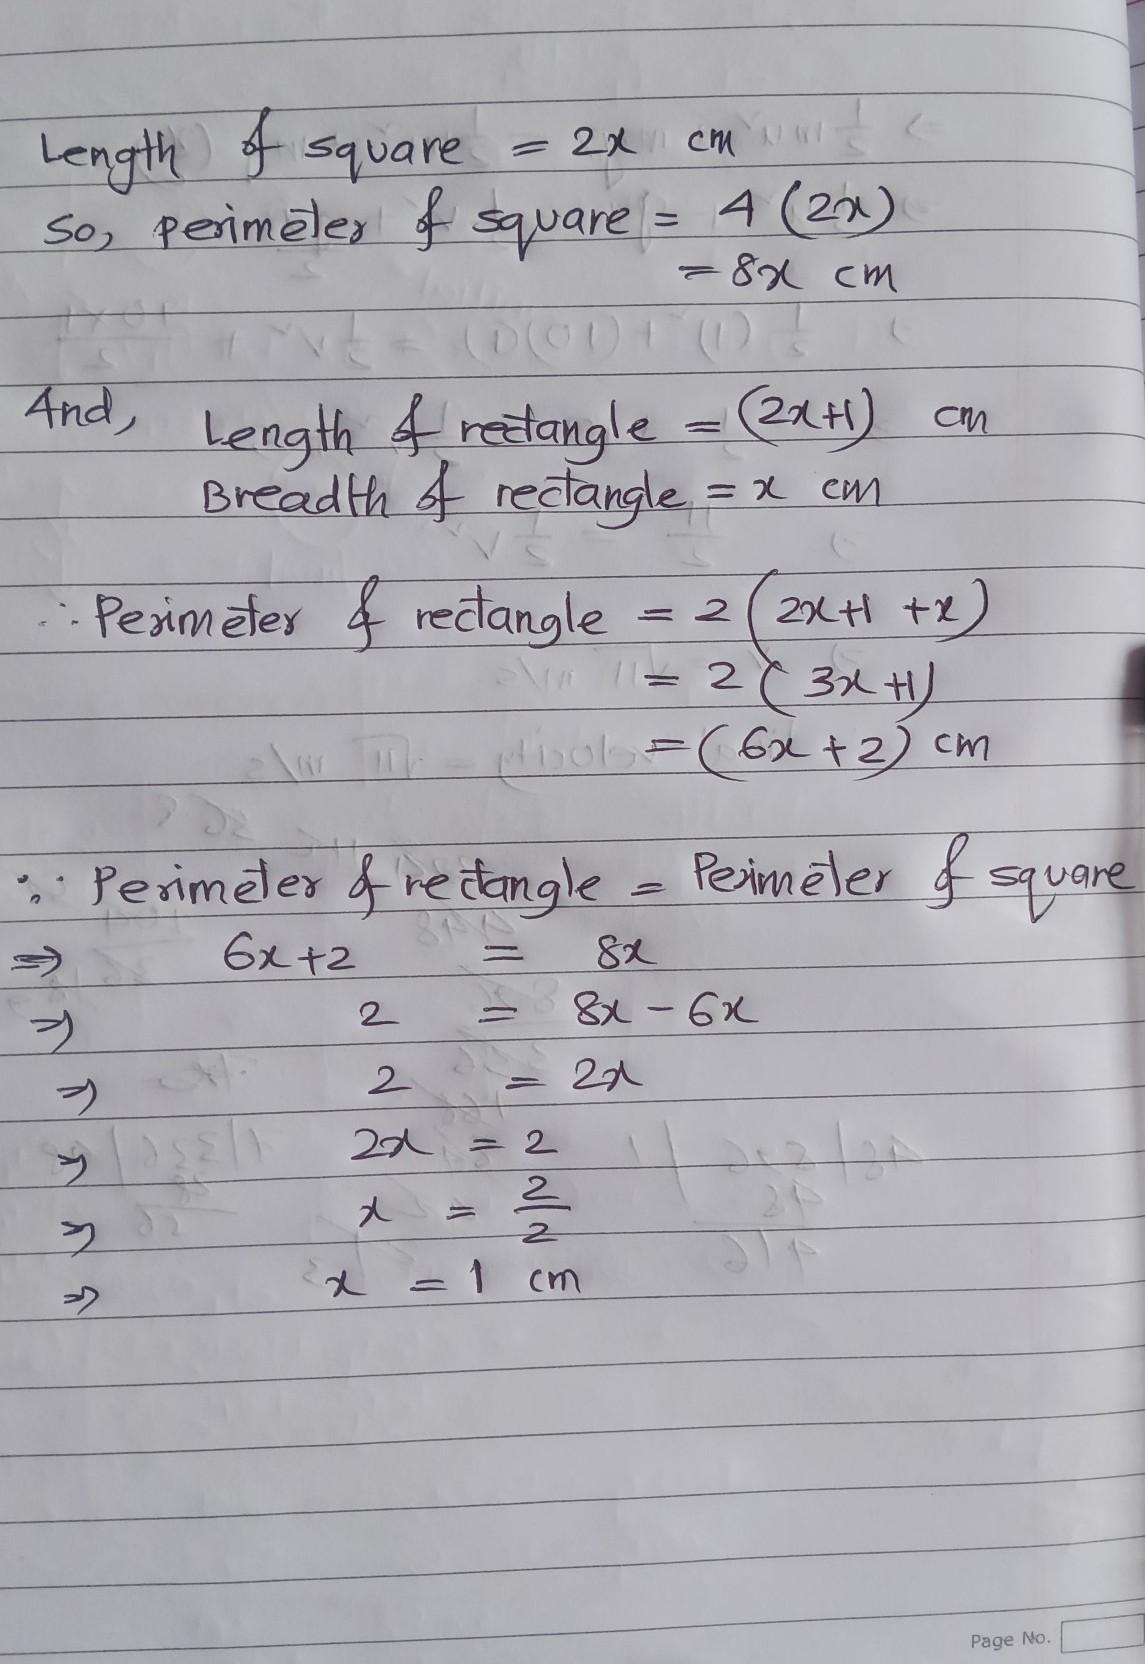 Length of square = 2x cm
So, perimeter of square = 4 (2x)
= 8x cm
And, Length of rectangle = (2x+1) cm
Breadth of rectangle = x cm
∴ Perimeter of rectangle = 2 (2x+1 +x)
= 2 (3x+1)
= (6x+2) cm
∵ Perimeter of rectangle = Perimeter of square
⇒ 6x+2 = 8x
⇒ 2 = 8x - 6x
⇒ 2 = 2x
⇒ 2x = 2
⇒ x = 2/2
⇒ x = 1 cm
Page No.